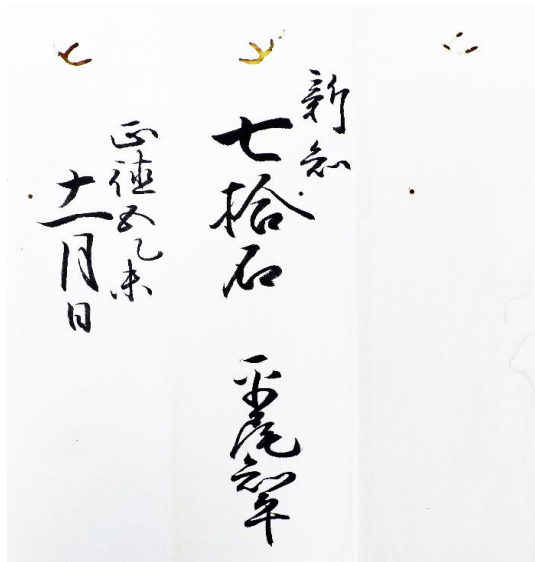 新知
七拾石 平尾知平
正徳五乙未
十一月日